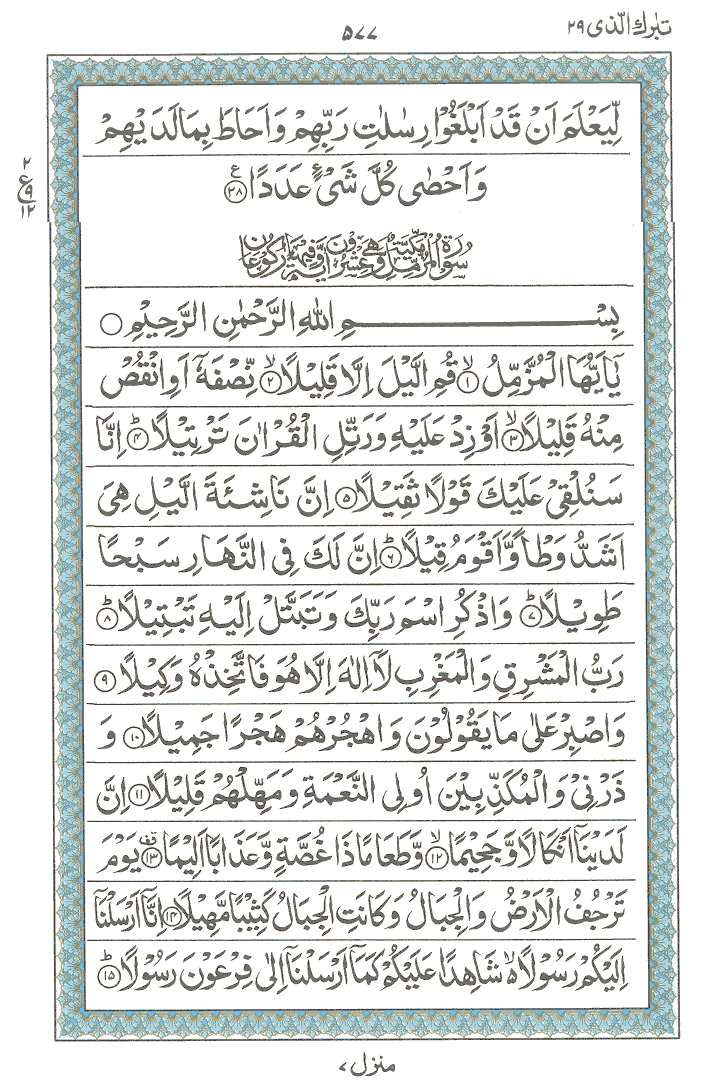 تبٰرك الّذی ٢٩
۵۷۷
لِّیَعْلَمَ اَنْ قَدْ اَبْلَغُوْا رِسٰلٰتِ رَبِّهِمْ وَاَحَاطَ بِمَا لَدَیْهِمْ
وَاَحْصٰی كُلَّ شَیْءٍ عَدَدًا ﴿٢٨﴾ ع
٢
ع
٩
١٢
سُوْرَةُ الْمُزَّمِّلِ مَكِّیَّةٌ وَّهِیَ عِشْرُوْنَ اٰیَةً وَّفِیْهَا رُكُوْعَانِ
بِسْمِ اللّٰهِ الرَّحْمٰنِ الرَّحِیْمِ ○
یٰۤاَیُّهَا الْمُزَّمِّلُ ۙ﴿١﴾ قُمِ الَّیْلَ اِلَّا قَلِیْلًا ۙ﴿٢﴾ نِّصْفَهٗۤ اَوِ انْقُصْ
مِنْهُ قَلِیْلًا ۙ﴿٣﴾ اَوْ زِدْ عَلَیْهِ وَرَتِّلِ الْقُرْاٰنَ تَرْتِیْلًا ؕ﴿۴﴾ اِنَّا
سَنُلْقِیْ عَلَیْكَ قَوْلًا ثَقِیْلًا ﴿۵﴾ اِنَّ نَاشِئَةَ الَّیْلِ هِیَ
اَشَدُّ وَطْاً وَّاَقْوَمُ قِیْلًا ؕ﴿۶﴾ اِنَّ لَكَ فِی النَّهَارِ سَبْحًا
طَوِیْلًا ؕ﴿۷﴾ وَاذْكُرِ اسْمَ رَبِّكَ وَتَبَتَّلْ اِلَیْهِ تَبْتِیْلًا ؕ﴿۸﴾
رَبُّ الْمَشْرِقِ وَالْمَغْرِبِ لَاۤ اِلٰهَ اِلَّا هُوَ فَاتَّخِذْهُ وَكِیْلًا ﴿۹﴾
وَاصْبِرْ عَلٰی مَا یَقُوْلُوْنَ وَاهْجُرْهُمْ هَجْرًا جَمِیْلًا ﴿١٠﴾ وَ
ذَرْنِیْ وَالْمُكَذِّبِیْنَ اُولِی النَّعْمَةِ وَمَهِّلْهُمْ قَلِیْلًا ﴿١١﴾ اِنَّ
لَدَیْنَاۤ اَنْكَالًا وَّجَحِیْمًا ۙ﴿١٢﴾ وَّطَعَامًا ذَا غُصَّةٍ وَّعَذَابًا اَلِیْمًا ۗ﴿١٣﴾ یَوْمَ
تَرْجُفُ الْاَرْضُ وَالْجِبَالُ وَكَانَتِ الْجِبَالُ كَثِیْبًا مَّهِیْلًا ﴿١۴﴾ اِنَّاۤ اَرْسَلْنَاۤ
اِلَیْكُمْ رَسُوْلًا ۙ شَاهِدًا عَلَیْكُمْ كَمَاۤ اَرْسَلْنَاۤ اِلٰی فِرْعَوْنَ رَسُوْلًا ؕ﴿١۵﴾
منزل ٧